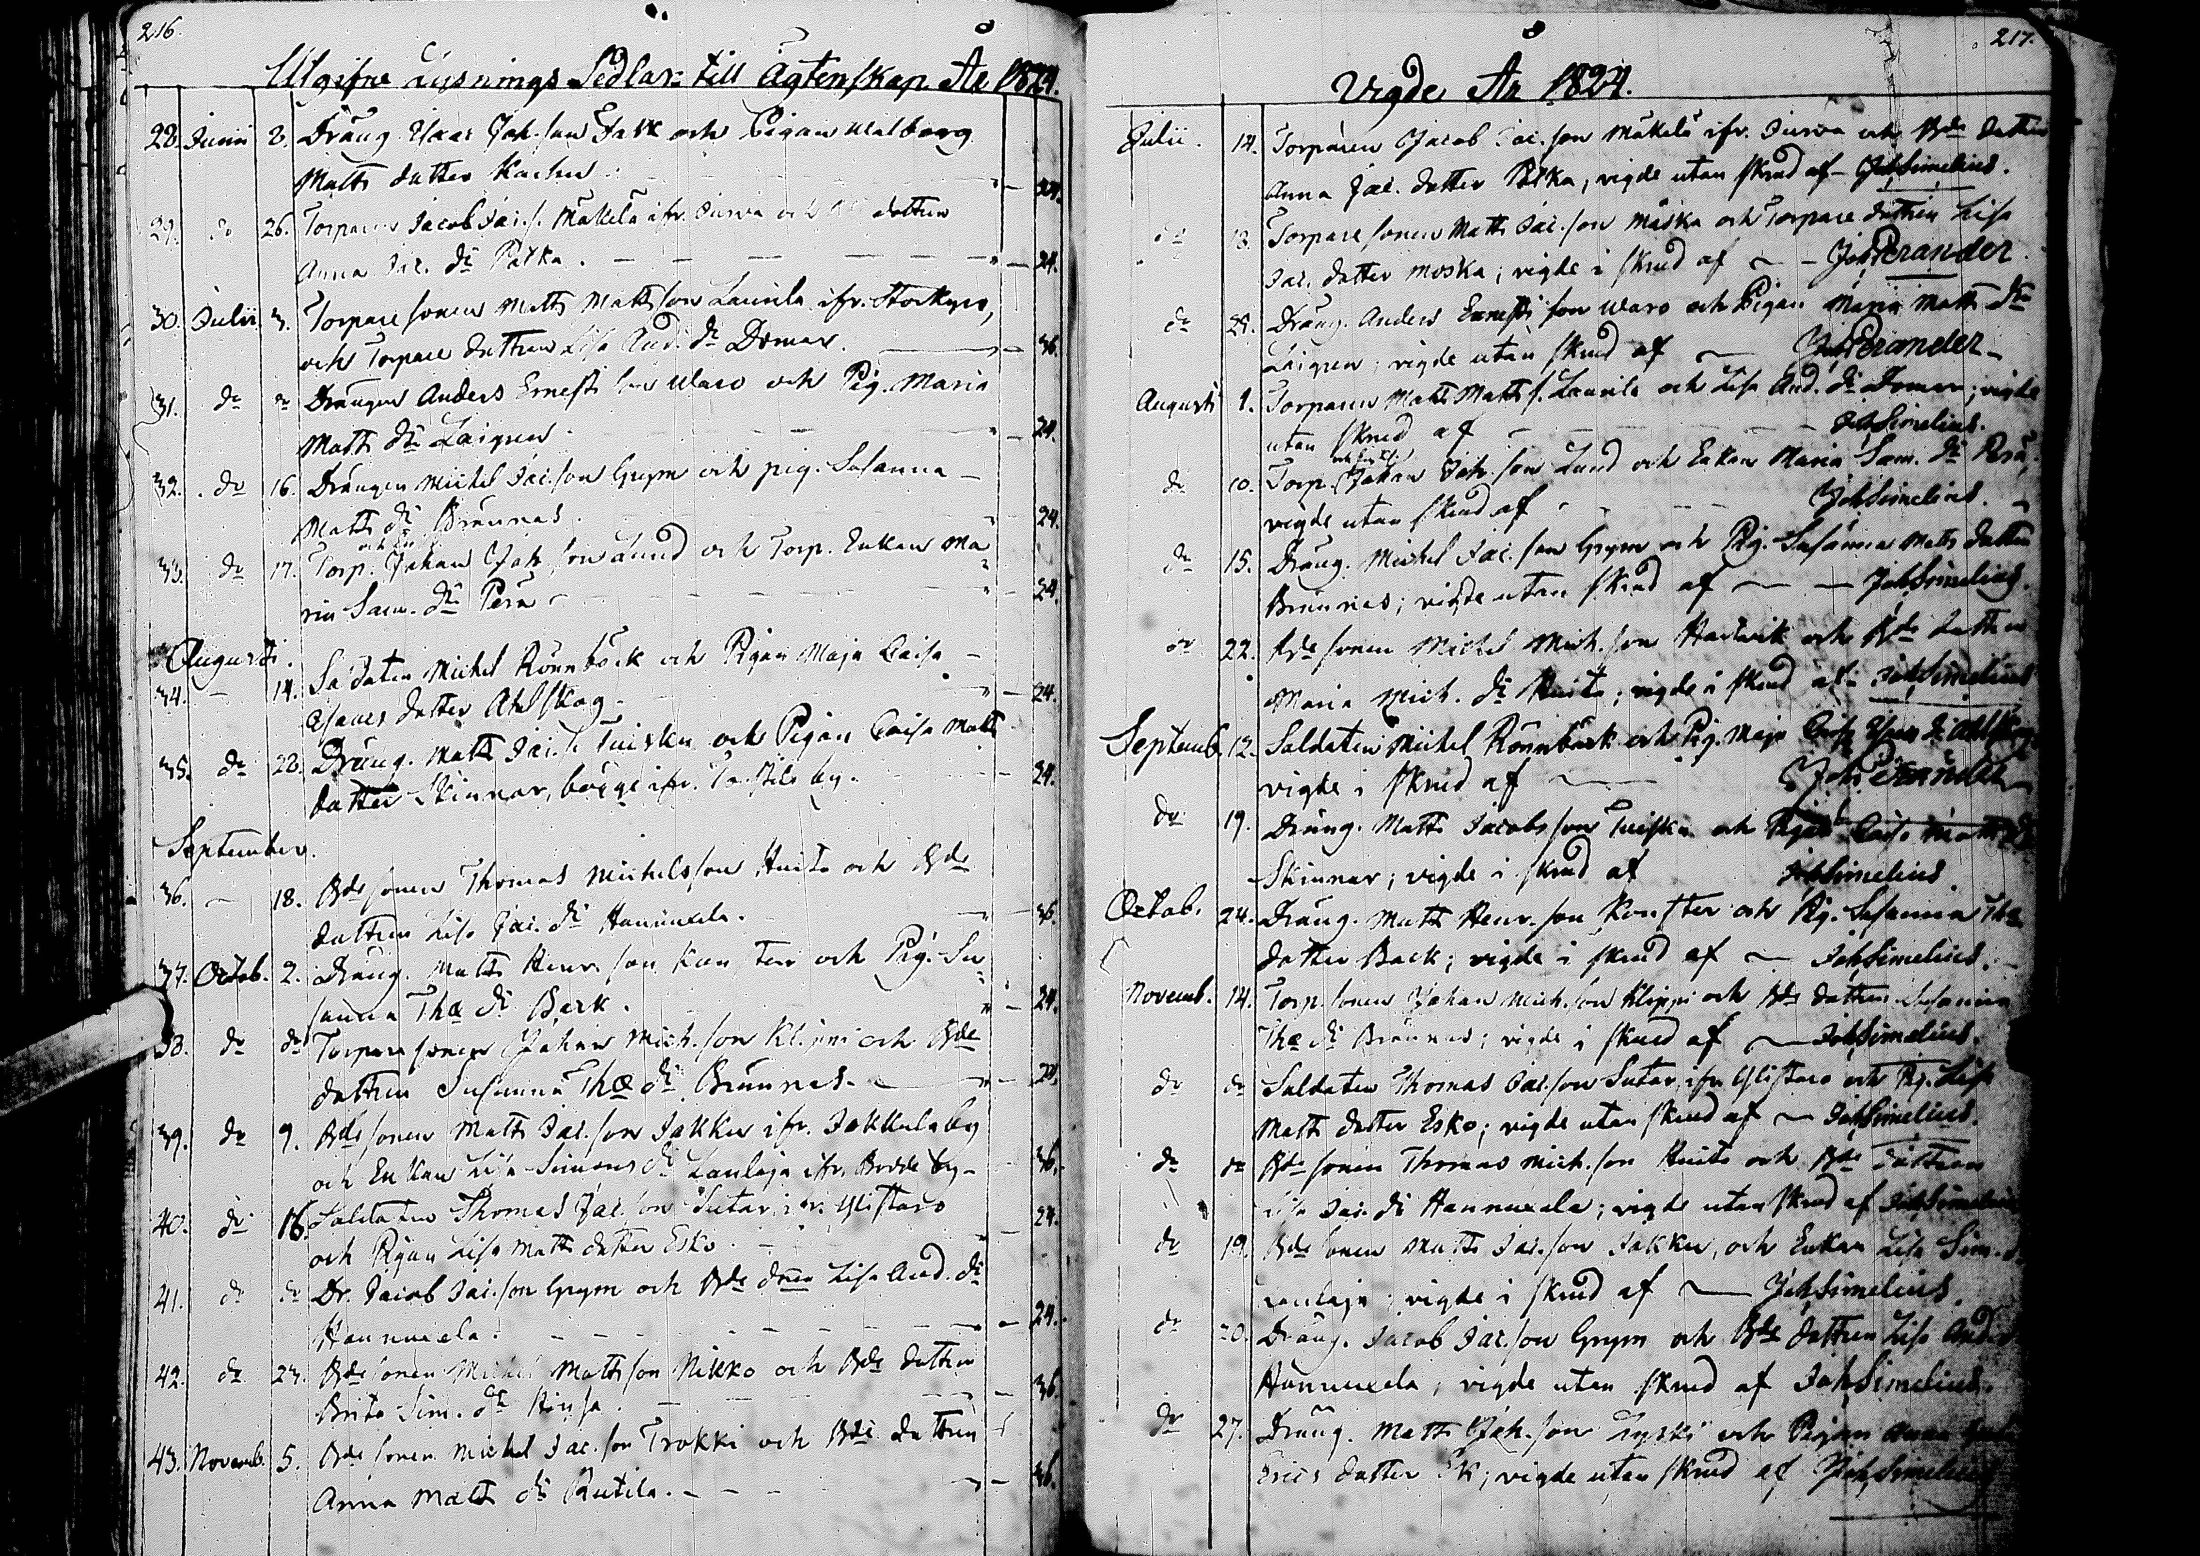 216.
Utgifne Lysnings Sedlar till Ägtenskap År 1824.
28. Junii 2. Dräng. Isaac Joh. son Falk och Pigan Walborg
Matts dotter — 24.
29. do 26. Torparen Jacob Jac. s. Mäkelä ifr. Jurva och Bde dottren
Anna Jac. dr Palka. — 24.
30. Julii 3. Torpare sonen Matts Matts son Laurila ifr. Storkyro,
och Torpare dottren Lisa And. dr Domar. — 36.
31. do do Drängen Anders Ernest son Waro och Pig. Maria
Matts dr Laigren. — 24.
32. do 16. Drängen Michel Jac. son Grym och pig. Susanna
Matts dr Brunnas. — 24.
33. do 17. Torp. Johan Joh. son Lund och Torp. Enkan Ma
ria Sam. dr Perä — 24.
Augusti.
34. – 14. Soldaten Michel Rönnbäck och Pigan Maja Caisa
Isaacs dotter Ahlskog. — 24.
35. do 28. Dräng. Matts Jac. s. Tuisku och Pigan Caisa Matts
dotter Skinnar, bägge ifr. by. — 24.
September.
36. – 18. Bde sonen Thomas Michelsson Huito och Bde
dottren Lisa Jac. dr Hannuxela. — 36.
37. Octob. 2. Dräng. Matts Henr. son och Pig. Su
sanna Thæ dr Back. — 24.
38. do do Torpare sonen Johan Mich. son Klippi och Bde
dottren Susanna Thæ dr Brunnas. — 24.
39. do 9. Bde sonen Matts Jac. son Jakku ifr. Jakkula by
och Enkan Lisa Simons dr Laulaja ifr. by — 36.
40. do 16. Soldaten Thomas Jac. son Sutar ifr. Ylistaro
och Pigan Lisa Matts dotter Esko. — 24.
41. do do Dr. Jacob Jac. son Grym och Bde dren Lisa And. dr
Hannuxela. — 24.
42. do 23. Bde sonen Michel Matts son Nikko och Bde dottren
Brita Sim. dr — 36.
43. Novemb. 5. Bde sonen Michel Jac. son Trokki och Bde dottren
Anna Matts dr Rutila. — 36.
217.
Vigde År 1824.
Julii. 14. Torparen Jacob Jac. son Mäkelä ifr. Jurva och Bde dottren
Anna Jac. dotter Palka, vigde utan skrud af Joh Simelius.
do 18. Torpare sonen Matts Jac. son Maska och Torpare dottren Lisa
Jac. dotter Moska; vigde i skrud af — Joh Perander.
do 25. Dräng. Anders Ernest son Waro och Pigan Maria Matts dr
Laigren; vigde utan skrud af — Joh Perander
Augusti 1. Torparen Matts Matts s. Laurila och Lisa And. dr Domar; vigde
utan skrud af — Joh Simelius.
do 10. Torp. Johan Joh. son Lund och Enkan Maria Sam. dr Perä,
vigde utan skrud af — Joh Simelius.
do 15. Dräng. Michel Jac. son Grym och Pig. Susanna Matts dotter
Brunnas; vigde utan skrud af — Joh Simelius.
do 22. Bde sonen Michel Mich. son och Bde dottren
Maria Mich. dr Huito; vigde i skrud af Joh Simelius
Septemb. 12. Soldaten Michel Rönnbäck och Pig. Maja Caisa Isaacs dr Ahlskog
vigde i skrud af — Joh Perander
do 19. Dräng. Matts Jacobs son Tuisku och Pigan Caisa Matts dr
Skinnar; vigde i skrud af Joh Simelius.
Octob. 24. Dräng. Matts Henr. son och Pig. Susanna Thæ
dotter Back; vigde i skrud af — Joh Simelius.
Novemb. 14. Torp. sonen Johan Mich. son Klippi och Bde dottren Susanna
Thæ dr Brunnas; vigde i skrud af — Joh Simelius.
do do Soldaten Thomas Jac. son Sutar ifr. Ylistaro och Pig. Lisa
Matts dotter Esko; vigde utan skrud af — Joh Simelius.
do do Bde sonen Thomas Mich. son Huito och Bde dottren
Lisa Jac. dr Hannuxela; vigde utan skrud af Joh Simelius
do 19. Bde sonen Matts Jac. son Jakku, och Enkan Lisa Sim. dr
Laulaja; vigde i skrud af — Joh Simelius.
do 20. Dräng. Jacob Jac. son Grym och Bde dottren Lisa Anders
Hannuxela; vigde utan skrud af Joh Simelius.
do 27. Dräng. Matts Joh. son och Pigan Anna
Erics dotter Ek; vigde utan skrud af Joh Simelius